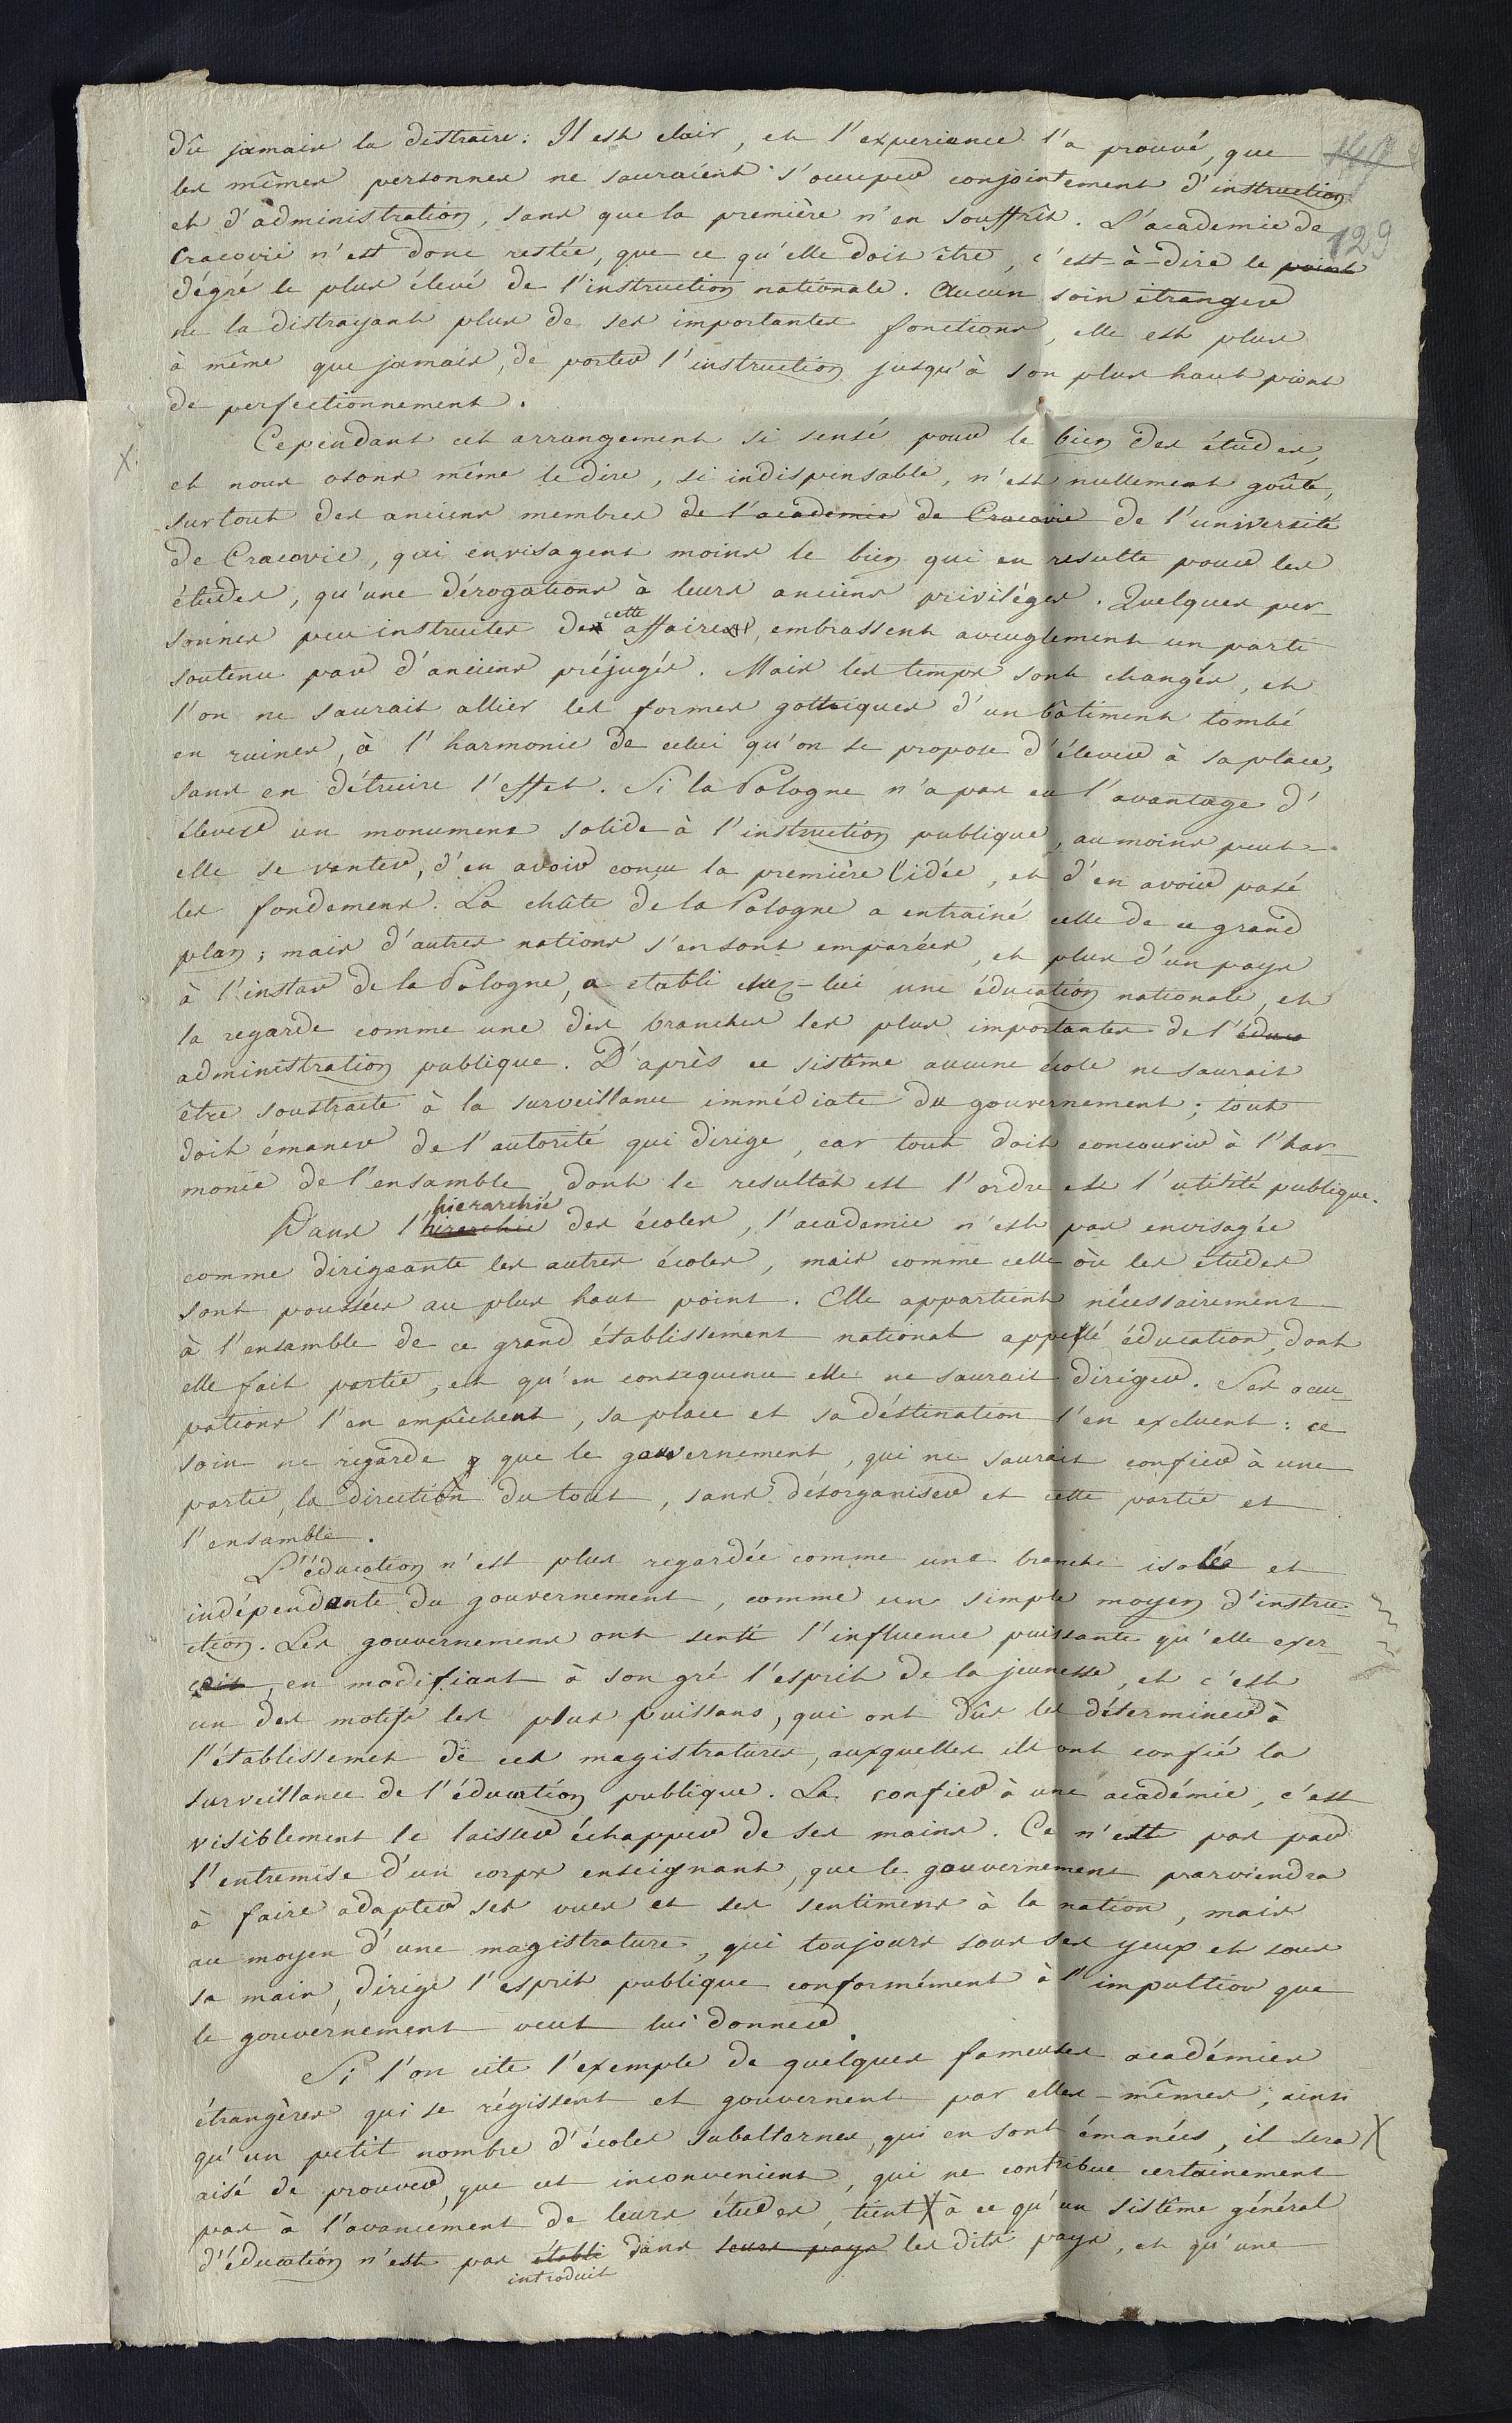 dû jamais la distraire. Il est clair, et l'experience l'a prouvé, que
129
les mêmes personnes ne sauraient s'occuper conjointement d'instruction
et d'administration, sans que la première n'en souffrit. L'academie de
Cracovie n'est donc restée, que ce qu'elle doit être, c'est-à-dire le point
dégré le plus élevé de l'instruction nationale. Aucun soin étranger
ne la distrayant plus de ses importantes fonctions, elle est plus
à même que jamais, de porter l'instruction jusqu'à son plus haut point
de perfectionnement.
X. Cependant cet arrangement si sensé pour le bien des études,
et nous osons même le dire, si indispensable, n'est nullement goûté,
surtout des anciens membres de l'academie de Cracovie de l'université
de Cracovie, qui envisagent moins le bien qui en resulte pour les
études, qu'une dérogations à leurs anciens priviléges. Quelques per
cette
sonnes peu instruites des affaires, embrassent aveuglement un parti
soutenu par d'anciens préjugés. Mais les temps sont changés, et
l'on ne saurait allier les formes gottiques d'un bâtiment tombé
en ruines, à l'harmonie de celui qu'on se propose d'élever à sa place,
sans en détruire l'effet. Si la Pologne n'a pas eu l'avantage d'
élever un monument solide à l'instruction publique, au moins peut-
elle se vanter, d'en avoir conçu la première l'idée, et d'en avoir posé
les fondemens. La chûte de la Pologne a entrainé celle de ce grand
plan; mais d'autres nations s'en sont emparées, et plus d'un pays
à l'instar de la Pologne, a etabli chez-lui une éducation nationale, et
la regarde comme une des branches les plus importantes de l'éduca
administration publique. D'après ce sistême aucune école ne saurait
être soustraite à la surveillance immédiate du gouvernement; tout
doit émaner de l'autorité qui dirige, car tout doit concourir à l'har
monie de l'ensamble, dont le resultat est l'ordre et l'utilité publique.
hierarchie
Dans l'hirarchie des écoles, l'academie n'est pas envisagée
comme dirigeante les autres écoles, mais comme celle où les études
sont poussées au plus haut point. Elle appartient nécessairement
à l'ensamble de ce grand établissement national appellé éducation, dont
elle fait partie, et qu'en consequence elle ne saurait diriger. Ses occu-
pations l'en empêchent, sa place et sa déstination l'en excluent: ce
soin ne régarde que le gouvernement, qui ne saurait confier à une
partie, la direction du tout, sans désorganiser et cette partie et
l'ensamble.
L'éducation n'est plus regardée comme une branche isolée et
indépendante du gouvernement, comme un simple moyen d'instru-
ction. Les gouvernemens ont senti l'influence puissante qu'elle exer
çait, en modifiant à son gré l'esprit de la jeunesse, et c'est
un des motifs les plus puissans, qui ont dûs les déterminer à
l'établissemet de ces magistratures, auxquelles ils ont confié la
surveillance de l'éducation publique. La confier à une académie, c'est
visiblement le laisser échapper de ses mains. Ce n'est pas par
l'entremise d'un corps enseignant, que le gouvernement parviendra
à faire adapter ses vues et ses sentimens à la nation, mais
au moyen d'une magistrature, qui toujours sous ses yeux et sous
sa main, dirige l'esprit publique conformément à l'impultion que
le gouvernement veut lui donner.
Si l'on cite l'exemple de quelques fameuses académies
étrangères qui se régissent et gouvernent par elles-mêmes; ainsi
qu'un petit nombre d'écoles subalternes, qui en sont émanées, il sera X
aisé de prouver, que cet inconvenient, qui ne contribue certainement
pas à l'avancement de leurs études, tient X à ce qu'un sistême général
d'éducation n'est pas établi dans leurs pays les dits pays, et qu'une
introduit